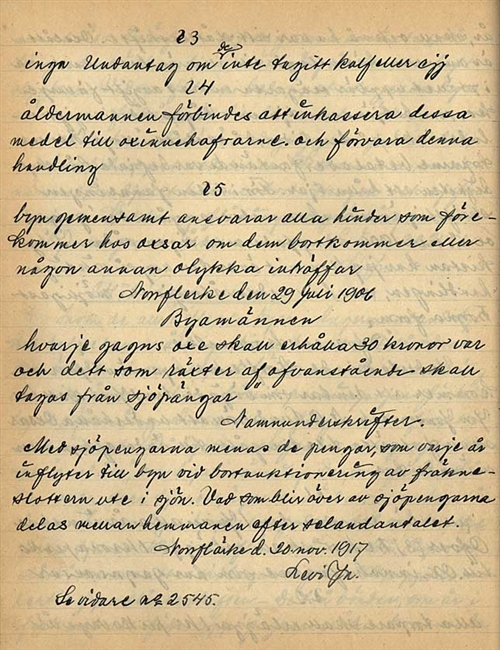 23
inga Undantag om de inte tagitt kalf eller ejj
24
åldermannen förbindes att inkassera dessa
medel till oxinnehafrarne. och förvara denna
handling
25
byn gemensamt ansvarar alla hinder som före-
kommer hos oxsar om dem bortkommer eller
någon annan olykka inträffar
Norrflerke den 29 Juli 1906
Byamännen
hvarje gagns oxe skall erhålla 30 kronor var
och dett som räxter af ofvanstående skall
tagas från sjöpängar
Namnunderskrifter.
Med sjöpengarna menas de pengar, som varje år
inflyter till byn vid bortauktionering av fräkne-
slottern ute i sjön. Vad som blir över av sjöpengarna
delas mellan hemmanen efter selandantalet.
Norrflärke d. 20. nov. 1917
Levi Jn.
Se vidare nr 2545.